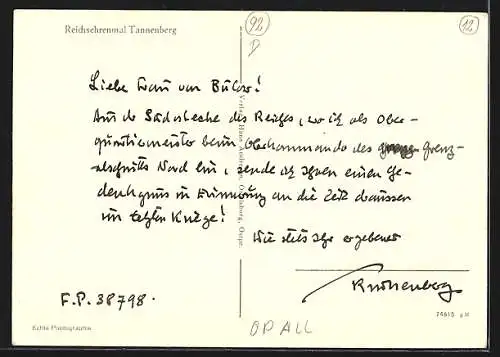 Reichsehrenmal Tannenberg
92
D
12
Liebe Frau von Bülow!
Aus der Südostecke des Reiches, wo ich als Ober-
quartiermeister beim Oberkommando des Grenz-
abschnitts Nord bin, sende ich Ihnen einen Ge-
denkgruss in Erinnerung an die Zeit draussen
im letzten Kriege!
Wie stets Ihr ergebener
F.P. 38798.
Echte Photographie
OP ALL